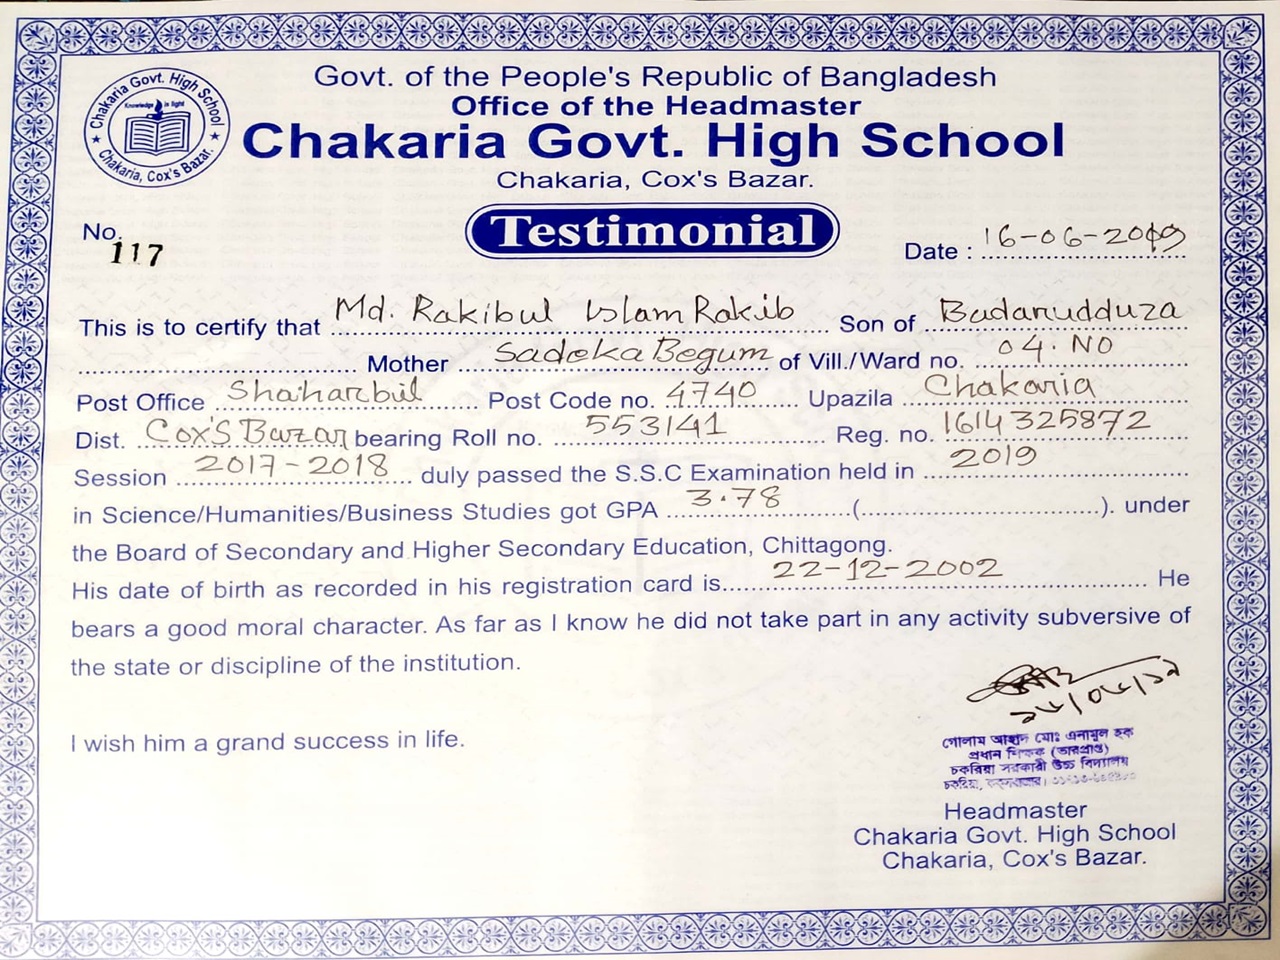 Chakaria Govt. High School
Knowledge is light
Chakaria, Cox's Bazar.
Govt. of the People's Republic of Bangladesh
Office of the Headmaster
Chakaria Govt. High School
Chakaria, Cox's Bazar.
Testimonial
No. 117
Date : 16-06-2019
This is to certify that Md. Rakibul Islam Rakib Son of Badarudduza
Mother Sadeka Begum of Vill./Ward no. 04. No
Post Office Shaharbil Post Code no. 4740 Upazila Chakaria
Dist. Cox'S Bazar bearing Roll no. 553141 Reg. no. 1614325872
Session 2017-2018 duly passed the S.S.C Examination held in 2019
in Science/Humanities/Business Studies got GPA 3.78 ( ). under
the Board of Secondary and Higher Secondary Education, Chittagong.
His date of birth as recorded in his registration card is 22-12-2002 He
bears a good moral character. As far as I know he did not take part in any activity subversive of
the state or discipline of the institution.
I wish him a grand success in life.
গোলাম আহাদ মোঃ এনামুল হক
প্রধান শিক্ষক (ভারপ্রাপ্ত)
চকরিয়া সরকারী উচ্চ বিদ্যালয়
চকরিয়া, কক্সবাজার।
Headmaster
Chakaria Govt. High School
Chakaria, Cox's Bazar.